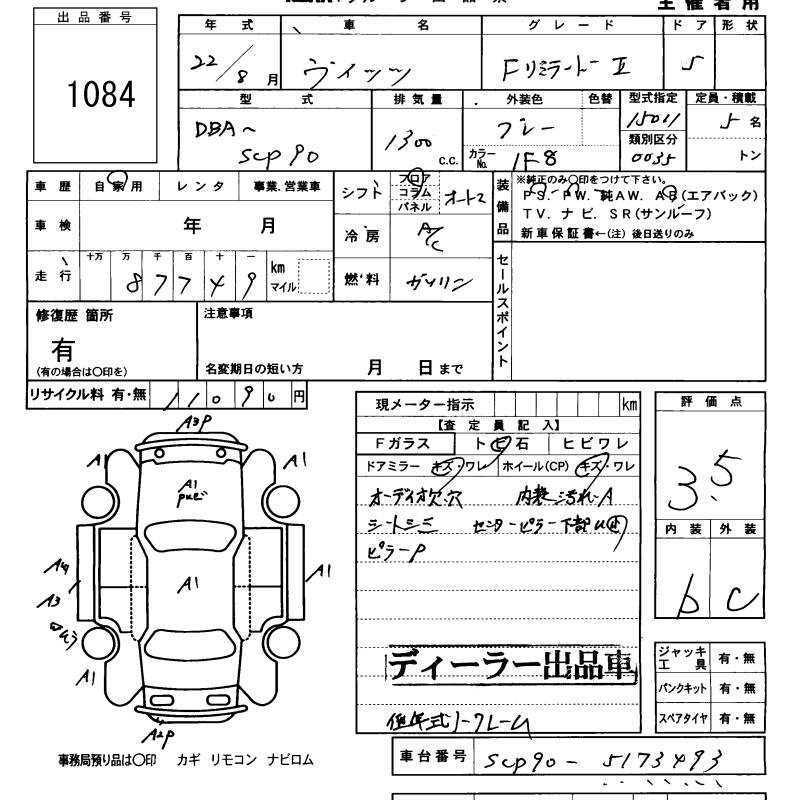 主 催 者 用
出 品 番 号
1084
年 式 車 名 グ レ ー ド ド ア 形 状
22/8月 ヴィッツ FリミテッドⅡ 5
型 式 排 気 量 外装色 色替 型式指定 定員・積載
DBA~ 1300 グレー 15011 5名
類別区分
SCP90 C.C. カラーNo. 1F8 0035 トン
車 歴 自 家 用 レ ン タ 事業.営業車
シフト フロア コラム パネル
装備品
※純正のみ〇印をつけて下さい。
PS. PW. 純AW. AB(エアバック)
TV. ナ ビ. SR(サンルーフ)
新 車 保 証 書←(注) 後日送りのみ
車 検 年 月
冷 房 A/C
走 行 十万 万 千 百 十 一
87749 km マイル
燃 料 ガソリン
セールスポイント
修復歴 箇所
有
(有の場合は〇印を)
注意事項
名変期日の短い方 月 日 まで
リサイクル料 有・無 11090 円
現メーター指示 km
【査 定 員 記 入】
Fガラス ト ビ 石 ヒ ビ ワ レ
ドアミラー キズ・ワレ ホイール(CP) キズ・ワレ
オーディオ欠.穴 内装汚れA
センターピラー下部
ピラーP
ディーラー出品車
評 価 点
3.5
内 装 外 装
b C
A3P
A1 A1
A1
A1
A4 A1
A3
A1
A2P
ジャッキ 工 具 有・無
パンクキット 有・無
スペアタイヤ 有・無
事務局預り品は〇印 カギ リモコン ナビロム
車 台 番 号 SCP90-5173493